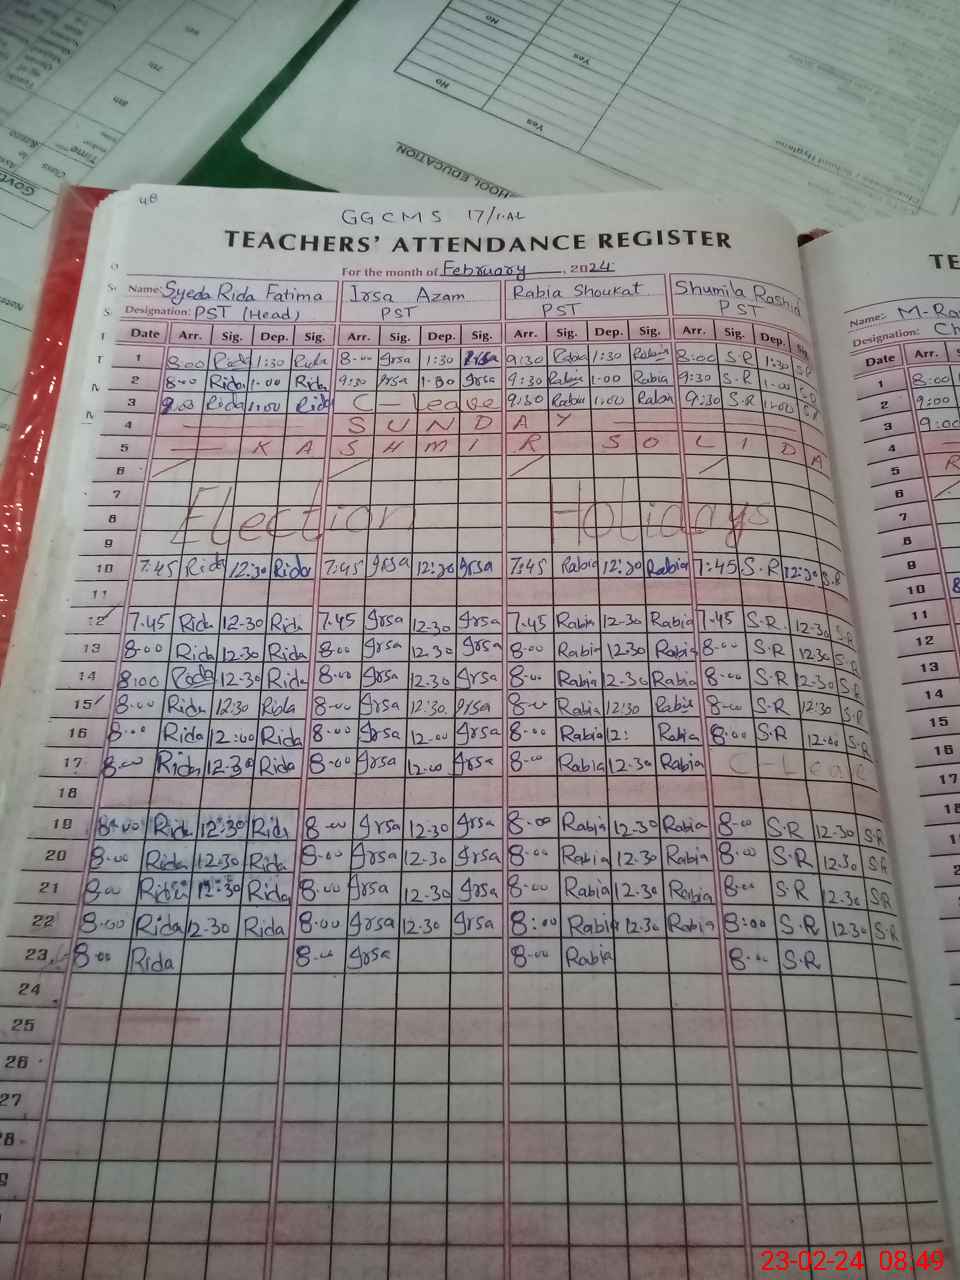 No
Yes
No
Yes
SCHOOL EDUCATION
GOVT
48
GGCMS 17/1.AL
TEACHERS' ATTENDANCE REGISTER
For the month of February, 2024
Name: Syeda Rida Fatima Irsa Azam Rabia Shoukat Shumila Rashid
Designation: PST (Head) PST PST PST
Date Arr. Sig. Dep. Sig. Arr. Sig. Dep. Sig. Arr. Sig. Dep. Sig. Arr. Sig. Dep. Sig.
1 8:00 Rida 1:30 Rida 8-00 Irsa 1:30 Irsa 9:30 Rabia 1:30 Rabia 8:00 S.R 1:30 S.R
2 8-00 Rida 1-00 Rida 9:30 Irsa 1-00 Irsa 9:30 Rabia 1-00 Rabia 9:30 S.R 1-00 S.R
3 9:00 Rida 1:00 Rida C-Leave 9:30 Rabia 1:00 Rabia 9:30 S.R 1:00 S.R
4 SUNDAY
5 KASHMIR SOLIDA
6
7
8 Election Holidays
9
10 7:45 Rida 12:30 Rida 7:45 Irsa 12:30 Irsa 7:45 Rabia 12:30 Rabia 7:45 S.R 12:30 S.R
11
12 7.45 Rida 12-30 Rida 7.45 Irsa 12-30 Irsa 7.45 Rabia 12-30 Rabia 7.45 S.R. 12-30 S.R
13 8-00 Rida 12.30 Rida 8-00 Irsa 12.30 Irsa 8-00 Rabia 12.30 Rabia 8-00 S.R 12.30 S.R
14 8:00 Rida 12-30 Rida 8-00 Irsa 12.30 Irsa 8-00 Rabia 12-30 Rabia 8-00 S.R 12-30 S.R
15 8-00 Rida 12:30 Rida 8-00 Irsa 12:30. Irsa 8-00 Rabia 12:30 Rabia 8-00 S.R 12:30 S.R
16 8-00 Rida 12:00 Rida 8-00 Irsa 12-00 Irsa 8-00 Rabia 12: Rabia 8:00 S.R 12.00 S.R
17 8-00 Rida 12-30 Rida 8-00 Irsa 12.00 Irsa 8-00 Rabia 12.30 Rabia C-Leave
18
19 8-00 Rida 12-30 Rida 8-00 Irsa 12-30 Irsa 8-00 Rabia 12-30 Rabia 8-00 S.R 12-30 S.R
20 8-00 Rida 12.30 Rida 8-00 Irsa 12-30 Irsa 8-00 Rabia 12.30 Rabia 8-00 S.R 12.30 S.R
21 8-00 Rida 12:30 Rida 8-00 Irsa 12-30 Irsa 8-00 Rabia 12.30 Rabia 8-00 S.R 12.30 S.R
22 8-00 Rida 12-30 Rida 8-00 Irsa 12.30 Irsa 8:00 Rabia 12.30 Rabia 8:00 S.R 12.30 S.R
23 8-00 Rida 8-00 Irsa 8-00 Rabia 8-00 S.R
24
25
26
27
28
TE
Name: M-Ra
Designation: Ch
Date Arr.
1 8:00
2 9:00
3 9:00
4
5 R
6
7
8
9
10 8
11
12
13
14
15
16
17
18
23-02-24 08:49